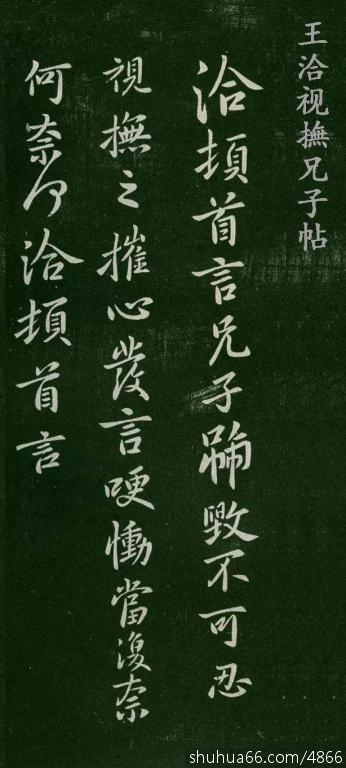 王洽视撫兄子帖
洽頓首言兄子號毀不可忍
視撫之摧心發言哽慟當復奈
何奈何洽頓首言
shuhua66.com/4866